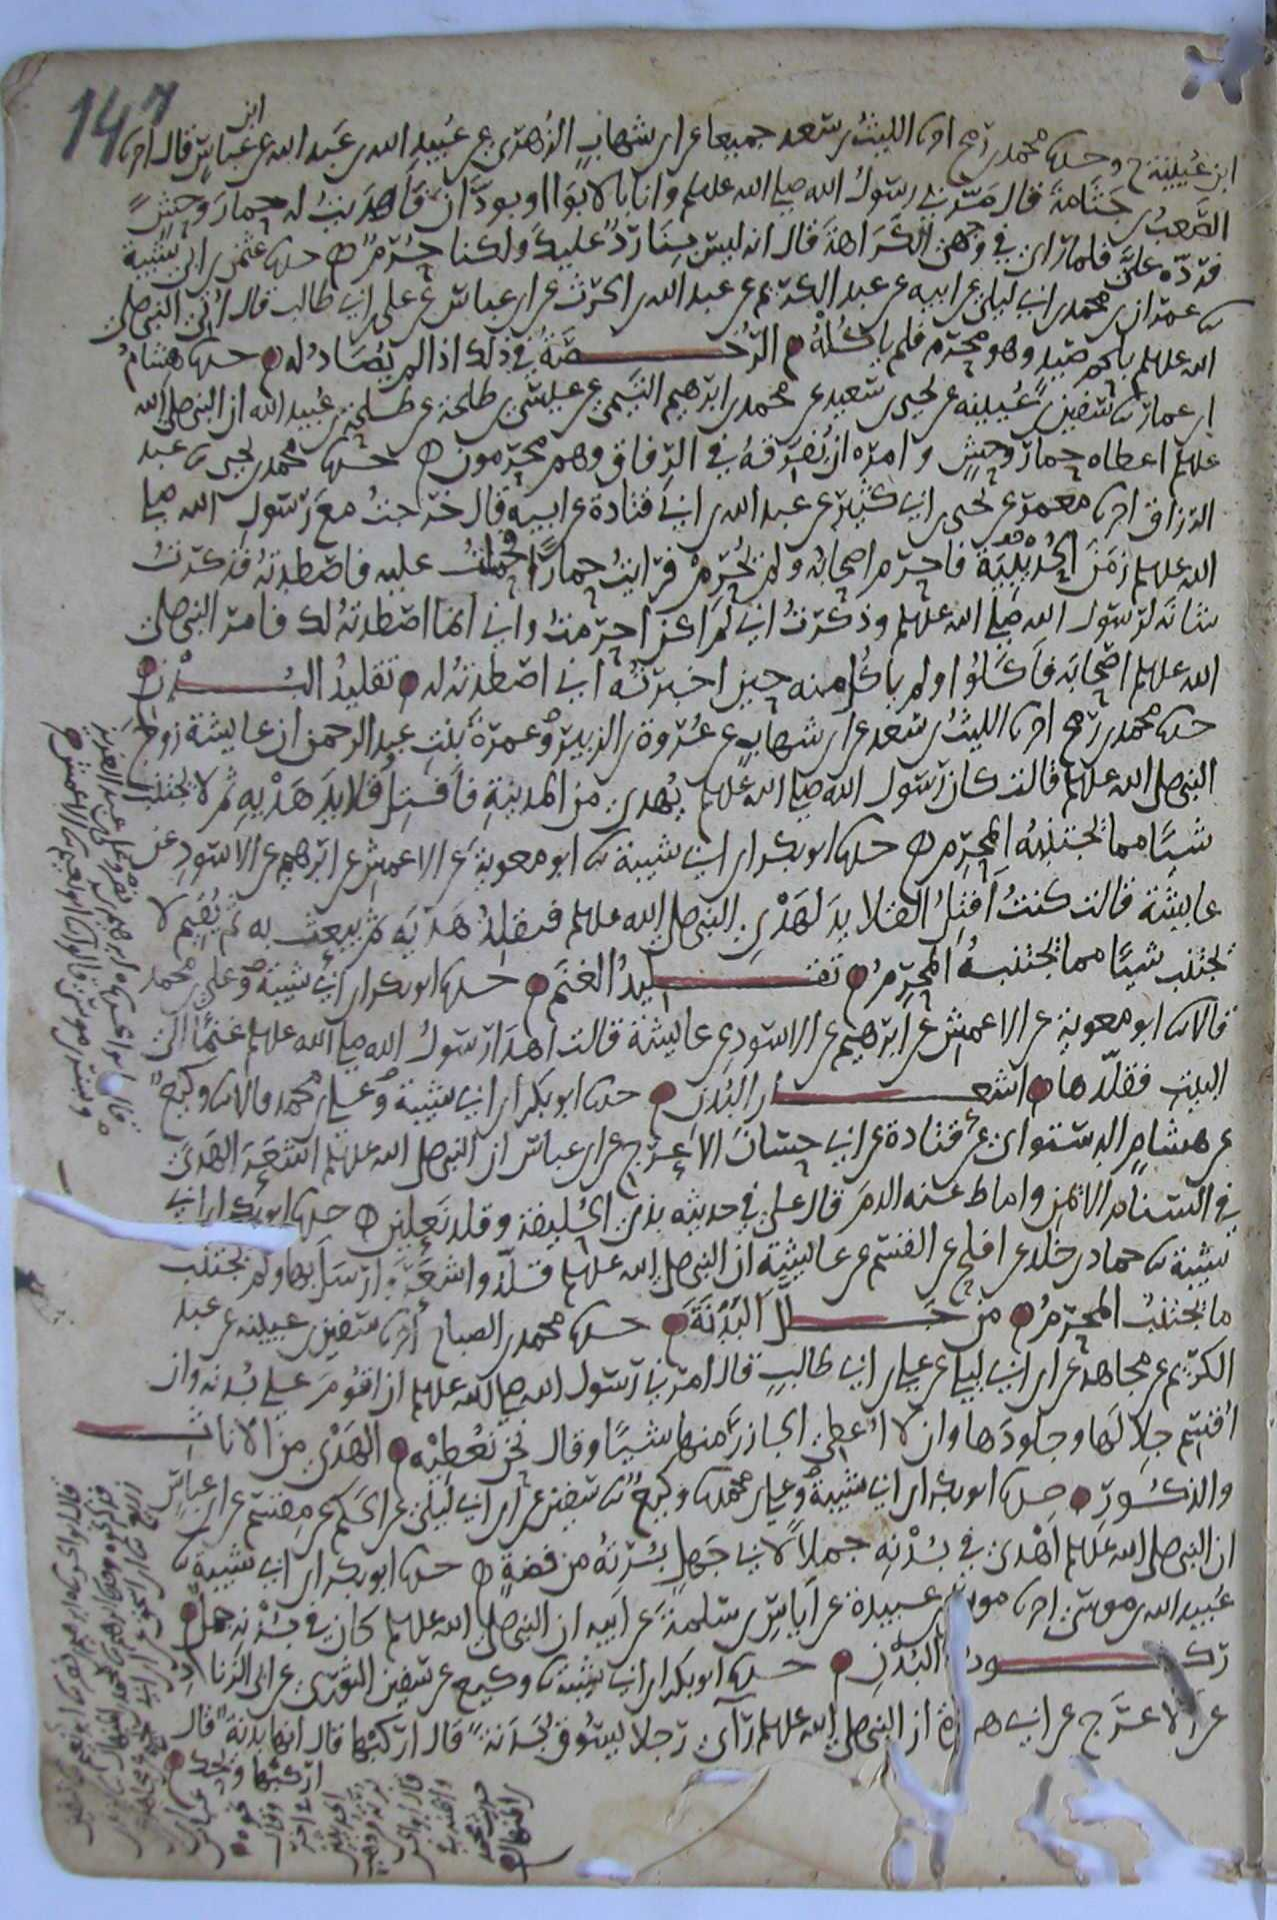 147
ابن عيينة ح وحدثنا محمد بن رمح اخبرنا الليث بن سعد جميعا عن ابن شهاب الزهري عن عبيد الله بن عبد الله عن ابن عباس قال اخبرنا
الصعب بن جثامة قال مر بي رسول الله صلى الله عليه وسلم وانا بالابواء او بودان فاهديت له حمار وحش
فرده علي فلما راى في وجهي الكراهة قال انه ليس بنا رد عليك ولكنا حرم ه حدثنا عثمن بن ابي شيبة
نا عمران بن محمد بن ابي ليلى عن ابيه عن عبد الكريم عن عبد الله بن الحرث عن ابن عباس عن علي بن ابي طالب قال اتي النبي صلى
الله عليه وسلم بلحم صيد وهو محرم فلم ياكله الرخصة في ذلك اذا لم يصاد له حدثنا هشام
بن عمار نا سفين بن عيينه عن يحيى بن سعيد عن محمد بن ابرهيم التيمي عن عيسى بن طلحة عن طلحة بن عبيد الله ان النبي صلى الله
عليه وسلم اعطاه حمار وحش وامره ان يفرقه في الرفاق وهم محرمون ه حدثنا محمد بن يحيى نا عبد
الرزاق اخبرنا معمر عن يحيى بن ابي كثير عن عبد الله بن ابي قتادة عن ابيه قال خرجت مع رسول الله صلى
الله عليه وسلم زمن الحديبية فاحرم اصحابه ولم احرم فرايت حمارا فحملت عليه فاصطدته فذكرت
شانه لرسول الله صلى الله عليه وسلم وذكرت اني لم اكن احرمت واني انما اصطدته لك فامر النبي صلى
الله عليه وسلم اصحابه فاكلوا ولم ياكل منه حين اخبرته اني اصطدته له تقليد البدن
حدثنا محمد بن رمح اخبرنا الليث بن سعد عن ابن شهاب عن عروة بن الزبير وعمرة بنت عبد الرحمن ان عايشة زوج
النبي صلى الله عليه وسلم قالت كان رسول الله صلى الله عليه وسلم يهدي من المدينة فافتل قلايد هديه ثم لا يجتنب
شيئا مما يجتنبه المحرم ه حدثنا ابو بكر بن ابي شيبة نا ابو معوية عن الاعمش عن ابرهيم عن الاسود عن
عايشة قالت كنت افتل القلايد لهدي النبي صلى الله عليه وسلم فيقلد هديه ثم يبعث به ثم يقيم لا
يجتنب شيئا مما يجتنبه المحرم تقليد الغنم حدثنا ابو بكر بن ابي شيبة وعلي بن محمد
قالا نا ابو معوية عن الاعمش عن ابرهيم عن الاسود عن عايشة قالت اهدى رسول الله صلى الله عليه وسلم غنما الى
البيت فقلدها اشعار البدن حدثنا ابو بكر بن ابي شيبة وعلي بن محمد قالا نا وكيع
عن هشام الدستواي عن قتادة عن ابي حسان الاعرج عن ابن عباس ان النبي صلى الله عليه وسلم اشعر الهدي
في السنام الايمن واماط عنه الدم قال علي في حديثه بذي الحليفة وقلد نعلين ه حدثنا ابو بكر بن ابي
شيبة نا حماد بن خلد عن افلح عن القسم عن عايشة ان النبي صلى الله عليه وسلم قلد واشعر وارسل بها ولم يجتنب
ما يجتنب المحرم من جلل البدنة حدثنا محمد بن الصباح اخبرنا سفين بن عيينه عن عبد
الكريم عن مجاهد عن ابن ابي ليلى عن علي بن ابي طالب قال امرني رسول الله صلى الله عليه وسلم ان اقوم على بدنه وان
اقسم جلالها وجلودها وان لا اعطي الجازر منها شيئا وقال نحن نعطيه الهدي من الاناث
والذكور حدثنا ابو بكر بن ابي شيبة وعلي بن محمد نا وكيع نا سفين عن ابن ابي ليلى عن الحكم عن مقسم عن ابن عباس
ان النبي صلى الله عليه وسلم اهدى في بدنه جملا لابي جهل برته من فضة ه حدثنا ابو بكر بن ابي شيبة نا
عبيد الله بن موسى اخبرنا موسى بن عبيدة عن اياس بن سلمة عن ابيه ان النبي صلى الله عليه وسلم كان في بدنه جمل
ركوب البدن حدثنا ابو بكر بن ابي شيبة نا وكيع عن سفين الثوري عن ابي الزناد
عن الاعرج عن ابي هريرة ان النبي صلى الله عليه وسلم راى رجلا يسوق بدنة قال اركبها قال انها بدنة قال
اركبها ويحك